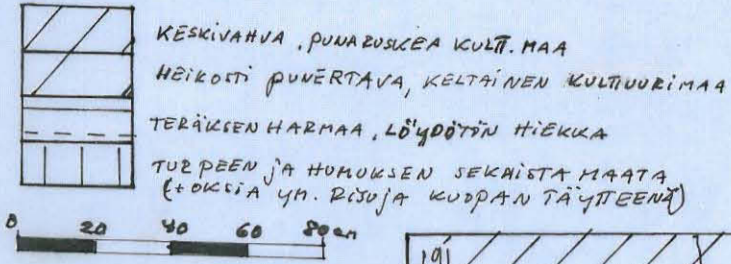 KESKIVAHVA, PUNARUSKEA KULTT. MAA
HEIKOSTI PUNERTAVA, KELTAINEN KULTTUURIMAA
TERÄKSEN HARMAA, LÖYDÖTÖN HIEKKA
TURPEEN JA HUMUKSEN SEKAISTA MAATA
(+ OKSIA YM. RISUJA KUOPAN TÄYTTEENÄ)
0 20 40 60 80 cm